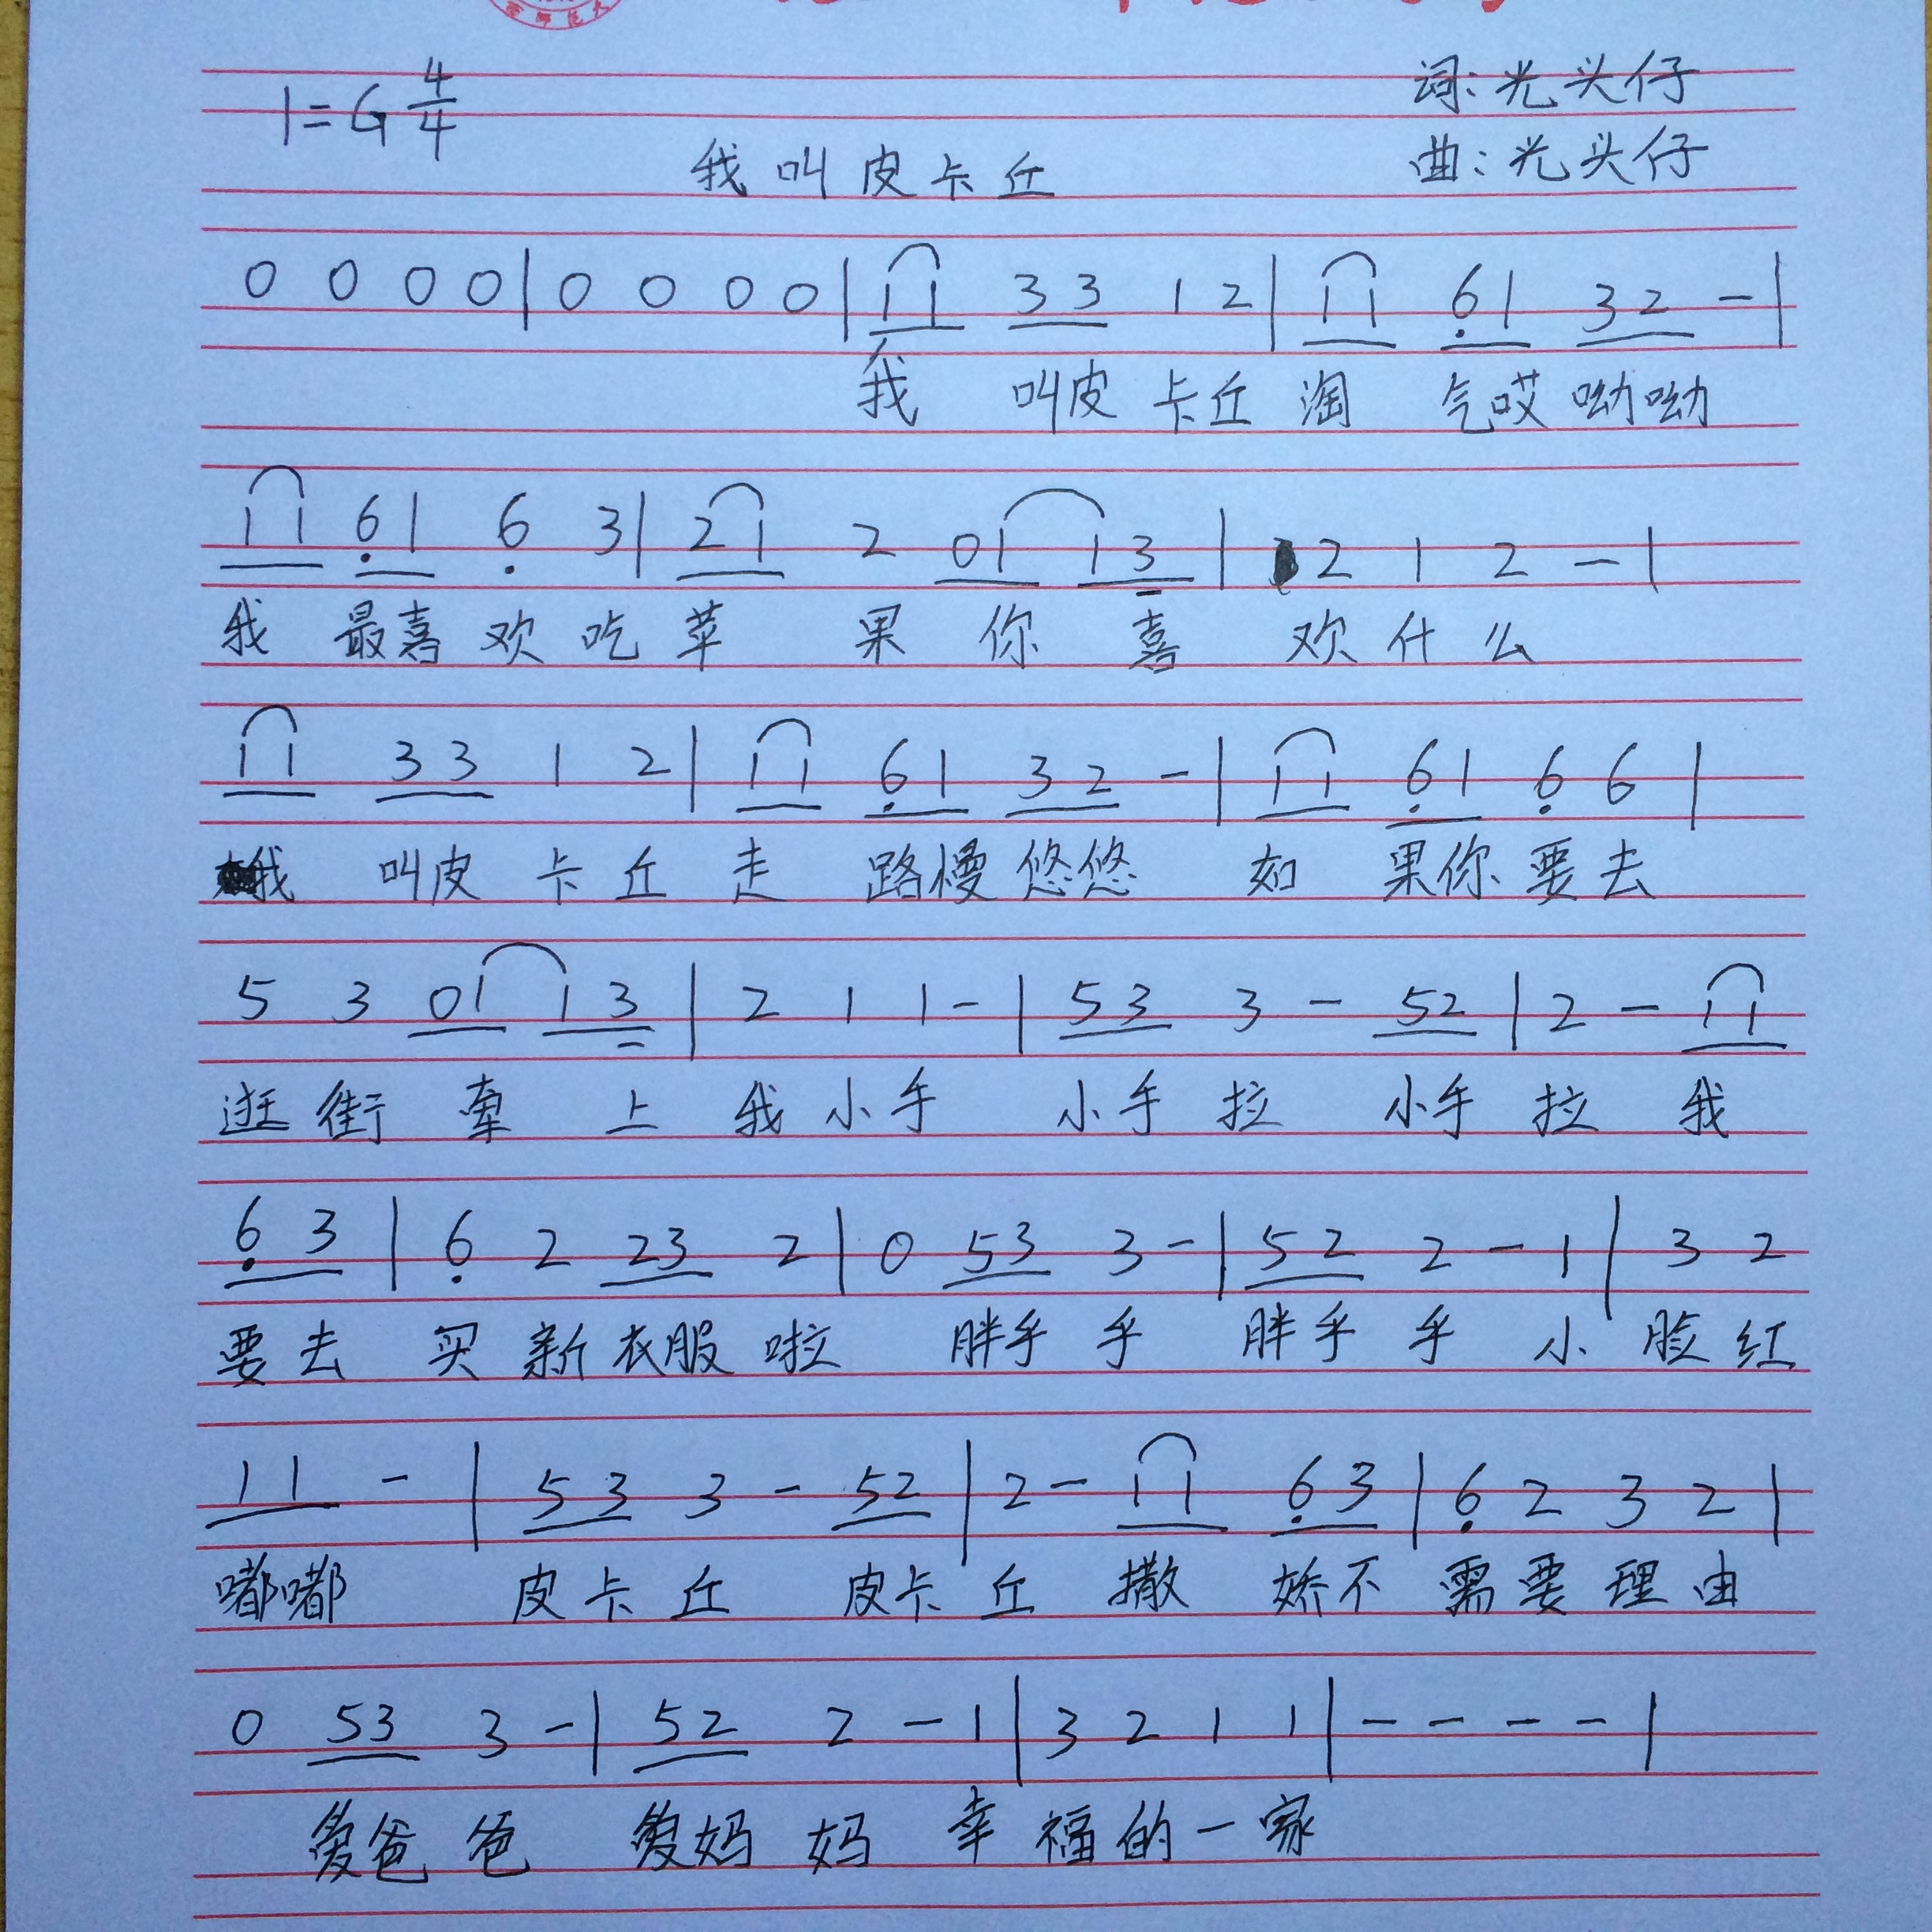 1=G 4/4
词:光头仔
我叫皮卡丘
曲:光头仔
0 0 0 0 | 0 0 0 0 | 1 1 3 3 1 2 | 1 1 6 1 3 2 - |
我 叫皮 卡丘 淘 气哎 呦呦
1 1 6 1 6 3 | 2 1 2 0 1 1 3 | 2 1 2 - |
我 最喜 欢 吃 苹 果 你 喜 欢 什 么
1 1 3 3 1 2 | 1 1 6 1 3 2 - | 1 1 6 1 6 6 |
我 叫皮 卡 丘 走 路慢 悠悠 如 果你 要 去
5 3 0 1 1 3 | 2 1 1 - | 5 3 3 - 5 2 | 2 - 1 1
逛 街 牵 上 我 小 手 小手 拉 小手 拉 我
6 3 | 6 2 2 3 2 | 0 5 3 3 - | 5 2 2 - 1 | 3 2
要 去 买 新 衣服 啦 胖乎 乎 胖乎 乎 小 脸 红
1 1 - | 5 3 3 - 5 2 | 2 - 1 1 6 3 | 6 2 3 2 |
嘟嘟 皮卡 丘 皮卡 丘 撒 娇不 需 要 理 由
0 5 3 3 - | 5 2 2 - 1 | 3 2 1 1 | - - - - |
爱爸 爸 爱妈 妈 幸 福 的 一 家